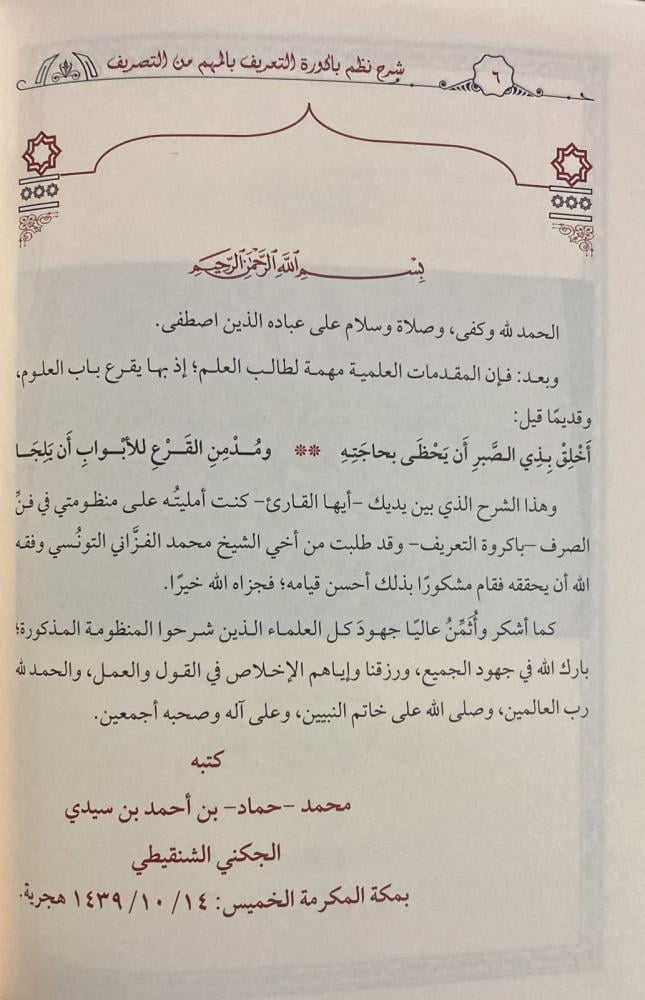 ٦
شرح نظم باكورة التعريف بالمهم من التصريف
بِسْمِ اللهِ الرَّحْمٰنِ الرَّحِيمِ
الحمد لله وكفى، وصلاة وسلام على عباده الذين اصطفى.
وبعد: فإن المقدمات العلمية مهمة لطالب العلم؛ إذ بها يقرع باب العلوم،
وقديمًا قيل:
أَخْلِقْ بِذِي الصَّبرِ أَن يَحْظَى بحاجَتِهِ ** ومُدْمِنِ القَرْعِ للأبْوابِ أَن يَلِجَا
وهذا الشرح الذي بين يديك -أيها القارئ- كنت أمليتُه على منظومتي في فنِّ
الصرف -باكروة التعريف- وقد طلبت من أخي الشيخ محمد الفزَّاني التونُسي وفقه
الله أن يحققه فقام مشكورًا بذلك أحسن قيامه؛ فجزاه الله خيرًا.
كما أشكر وأُثَمِّنُ عاليًا جهودَ كل العلماء الذين شرحوا المنظومة المذكورة؛
بارك الله في جهود الجميع، ورزقنا وإياهم الإخلاص في القول والعمل، والحمد لله
رب العالمين، وصلى الله على خاتم النبيين، وعلى آله وصحبه أجمعين.
كتبه
محمد -حماد- بن أحمد بن سيدي
الجكني الشنقيطي
بمكة المكرمة الخميس: ١٤/ ١٠/ ١٤٣٩ هجرية.